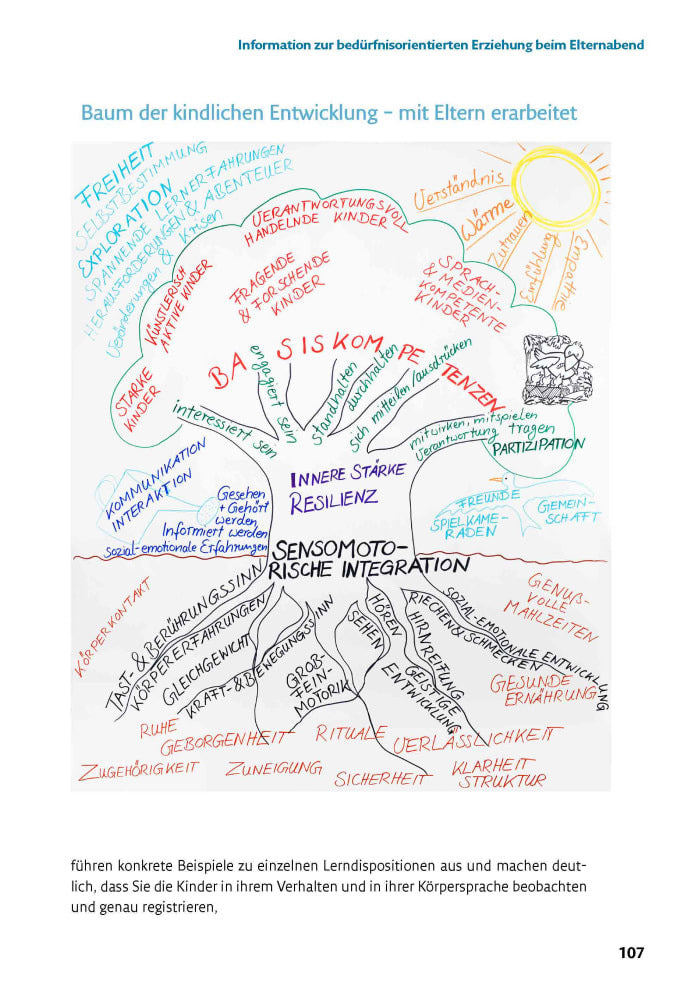 Information zur bedürfnisorientierten Erziehung beim Elternabend
Baum der kindlichen Entwicklung – mit Eltern erarbeitet
FREIHEIT
SELBSTBESTIMMUNG
EXPLORATION
SPANNENDE LERNERFAHRUNGEN
HERAUSFORDERUNGEN & ABENTEUER
Veränderungen & Krisen
Verständnis
Wärme
Zutrauen
Einfühlung
Empathie
VERANTWORTUNGSVOLL
HANDELNDE KINDER
KÜNSTLERISCH
AKTIVE KINDER
FRAGENDE
& FORSCHENDE
KINDER
SPRACH-
& MEDIEN-
KOMPETENTE
KINDER
STARKE
KINDER
BASISKOMPETENZEN
interessiert sein
engagiert sein
standhalten
durchhalten
sich mitteilen/ausdrücken
mitwirken, mitspielen
Verantwortung tragen
PARTIZIPATION
INNERE STÄRKE
RESILIENZ
KOMMUNIKATION
INTERAKTION
Gesehen
+ Gehört
werden
Informiert werden
Sozial-emotionale Erfahrungen
FREUNDE
SPIELKAME-
RADEN
GEMEIN-
SCHAFT
SENSOMOTO-
RISCHE INTEGRATION
KÖRPERKONTAKT
TAST- & BERÜHRUNGSSINN
KÖRPERERFAHRUNGEN
GLEICHGEWICHT
KRAFT- & BEWEGUNGSSINN
GROB-
FEIN-
MOTORIK
SEHEN
HÖREN
HIRNREIFUNG
GEISTIGE
ENTWICKLUNG
RIECHEN & SCHMECKEN
SOZIAL-EMOTIONALE ENTWICKLUNG
GENUß-
VOLLE
MAHLZEITEN
GESUNDE
ERNÄHRUNG
RUHE
GEBORGENHEIT
RITUALE
VERLÄSSLICHKEIT
ZUGEHÖRIGKEIT
ZUNEIGUNG
SICHERHEIT
KLARHEIT
STRUKTUR
führen konkrete Beispiele zu einzelnen Lerndispositionen aus und machen deut-
lich, dass Sie die Kinder in ihrem Verhalten und in ihrer Körpersprache beobachten
und genau registrieren,
107